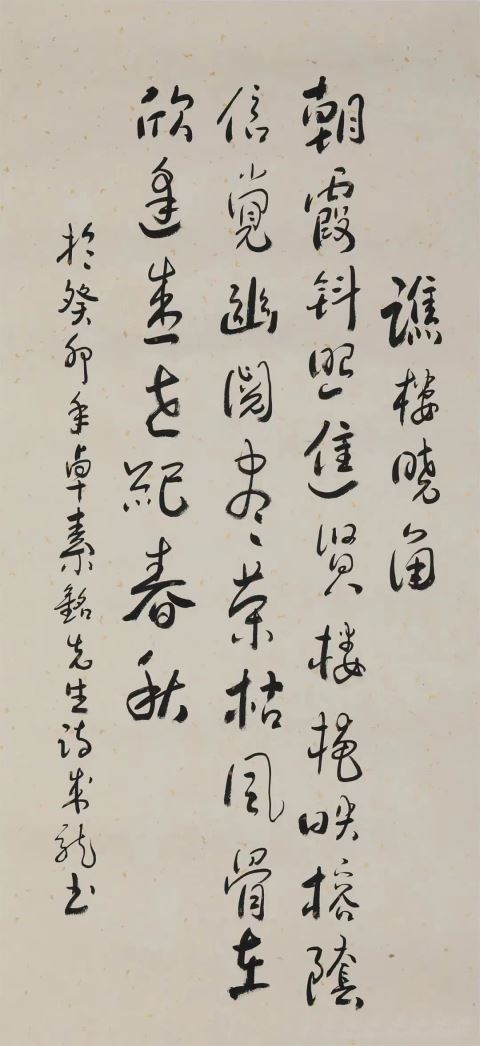 譙樓曉角
朝霞斜照進賢樓掩映榕蔭
信覺幽閱盡榮枯風骨在
欣逢盛世紀春秋
於癸卯年卓素銘先生詩龍书